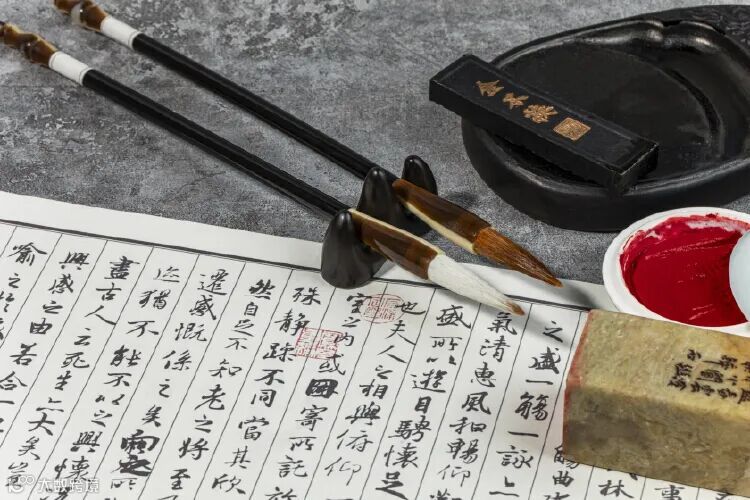 金不換
林
曲
之盛一觴一詠
氣清惠風和暢仰
盛所以遊目騁懷足
也夫人之相與俯仰
室之内或因寄所託
殊静躁不同當其欣
然自足不知老之將至
遷感慨係之矣
猶不能不以之興懷
盡古人云死生亦大矣
興感之由若合一
喻之於
大数跨境